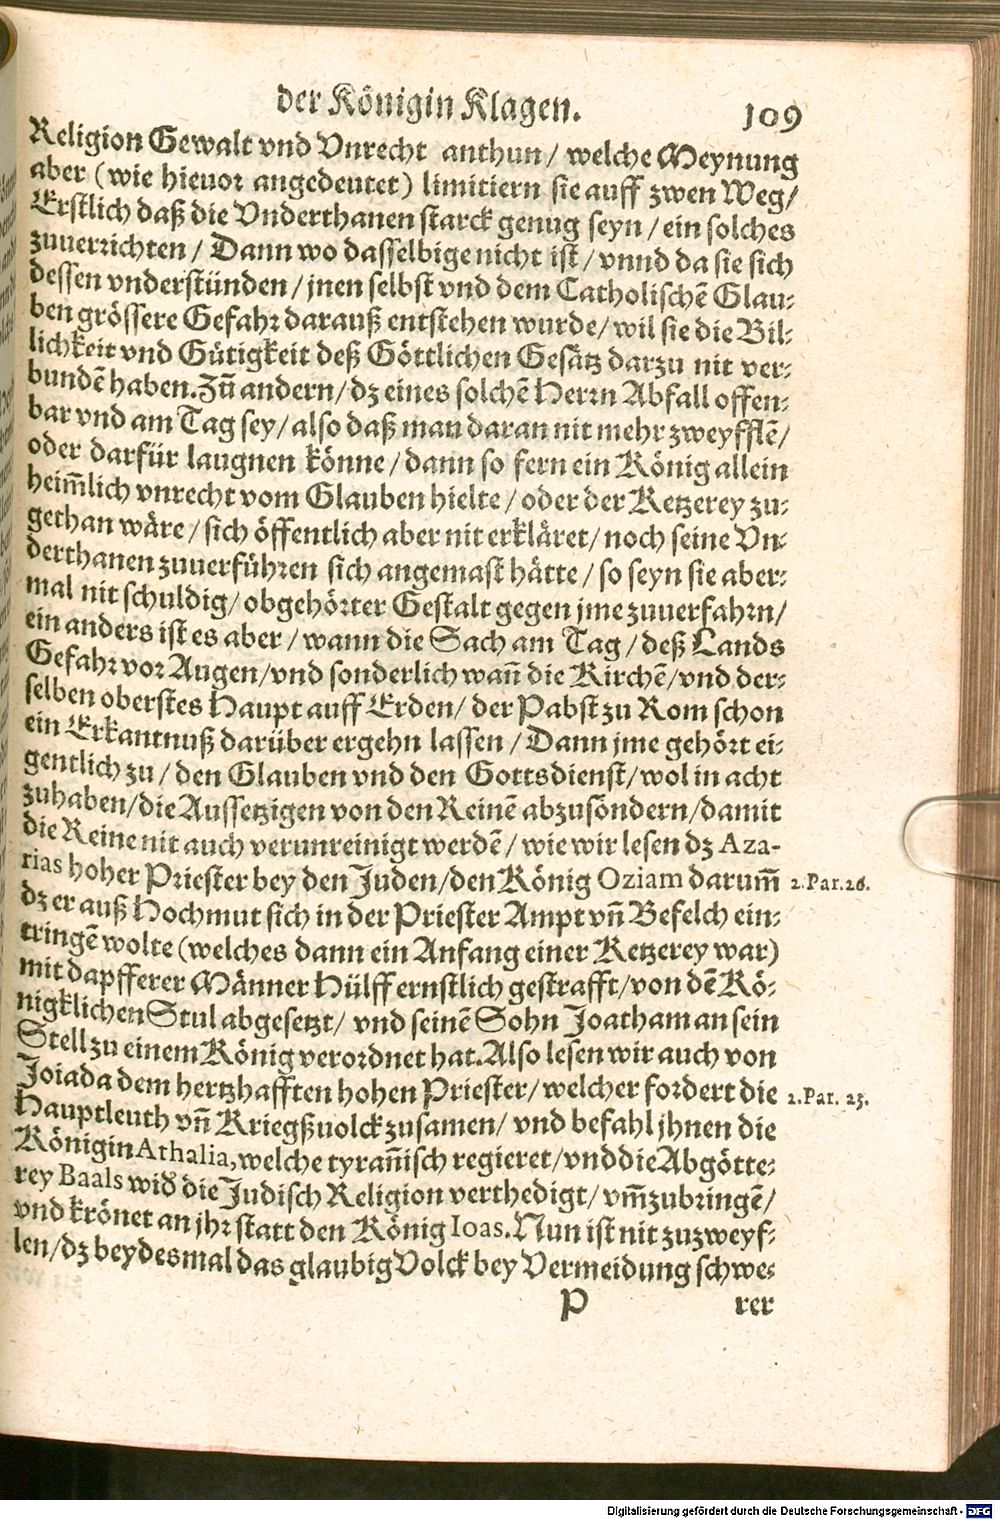 der Königin Klagen. 109
Religion Gewalt vnd Vnrecht anthun / welche Meynung
aber (wie hieuor angedeutet) limitiern sie auff zwen Weg /
Erstlich daß die Vnderthanen starck genug seyn / ein solches
zuuerrichten / Dann wo dasselbige nicht ist / vnnd da sie sich
dessen vnderstünden / jnen selbst vnd dem Catholischẽ Glau-
ben grössere Gefahr darauß entstehen wurde / wil sie die Bil-
lichkeit vnd Gütigkeit deß Göttlichen Gesätz darzu nit ver-
bundẽ haben. Zũ andern / dz eines solchẽ Herrn Abfall offen-
bar vnd am Tag sey / also daß man daran nit mehr zweyfflẽ /
oder darfür laugnen könne / dann so fern ein König allein
heim̃lich vnrecht vom Glauben hielte / oder der Ketzerey zu-
gethan wäre / sich öffentlich aber nit erkläret / noch seine Vn-
derthanen zuuerführen sich angemast hätte / so seyn sie aber-
mal nit schuldig / obgehörter Gestalt gegen jme zuuerfahrn /
ein anders ist es aber / wann die Sach am Tag / deß Lands
Gefahr vor Augen / vnd sonderlich wañ die Kirchẽ / vnd der-
selben oberstes Haupt auff Erden / der Pabst zu Rom schon
ein Erkantnuß darüber ergehn lassen / Dann jme gehört ei-
gentlich zu / den Glauben vnd den Gottsdienst / wol in acht
zuhaben / die Aussetzigen von den Reinẽ abzusöndern / damit
die Reine nit auch verunreinigt werdẽ / wie wir lesen dz Aza-
rias hoher Priester bey den Juden / den König Oziam darum̃ 2.Par.26.
dz er auß Hochmut sich in der Priester Ampt vñ Befelch ein-
tringẽ wolte (welches dann ein Anfang einer Ketzerey war)
mit dapfferer Männer Hülff ernstlich gestrafft / von dẽ Kö-
nigklichen Stul abgesetzt / vnd seinẽ Sohn Joatham an sein
Stell zu einem König verordnet hat. Also lesen wir auch von
Joiada dem hertzhafften hohen Priester / welcher fordert die 2.Par. 23.
Hauptleuth vñ Kriegßuolck zusamen / vnd befahl jhnen die
Königin Athalia, welche tyrañisch regieret / vnd die Abgötte-
rey Baals wid̕ die Judisch Religion verthedigt / vm̃zubringẽ /
vnd krönet an jhr statt den König Ioas. Nun ist nit zuzweyf-
len / dz beydesmal das glaubig Volck bey Vermeidung schwe-
P rer
Digitalisierung gefördert durch die Deutsche Forschungsgemeinschaft - DFG